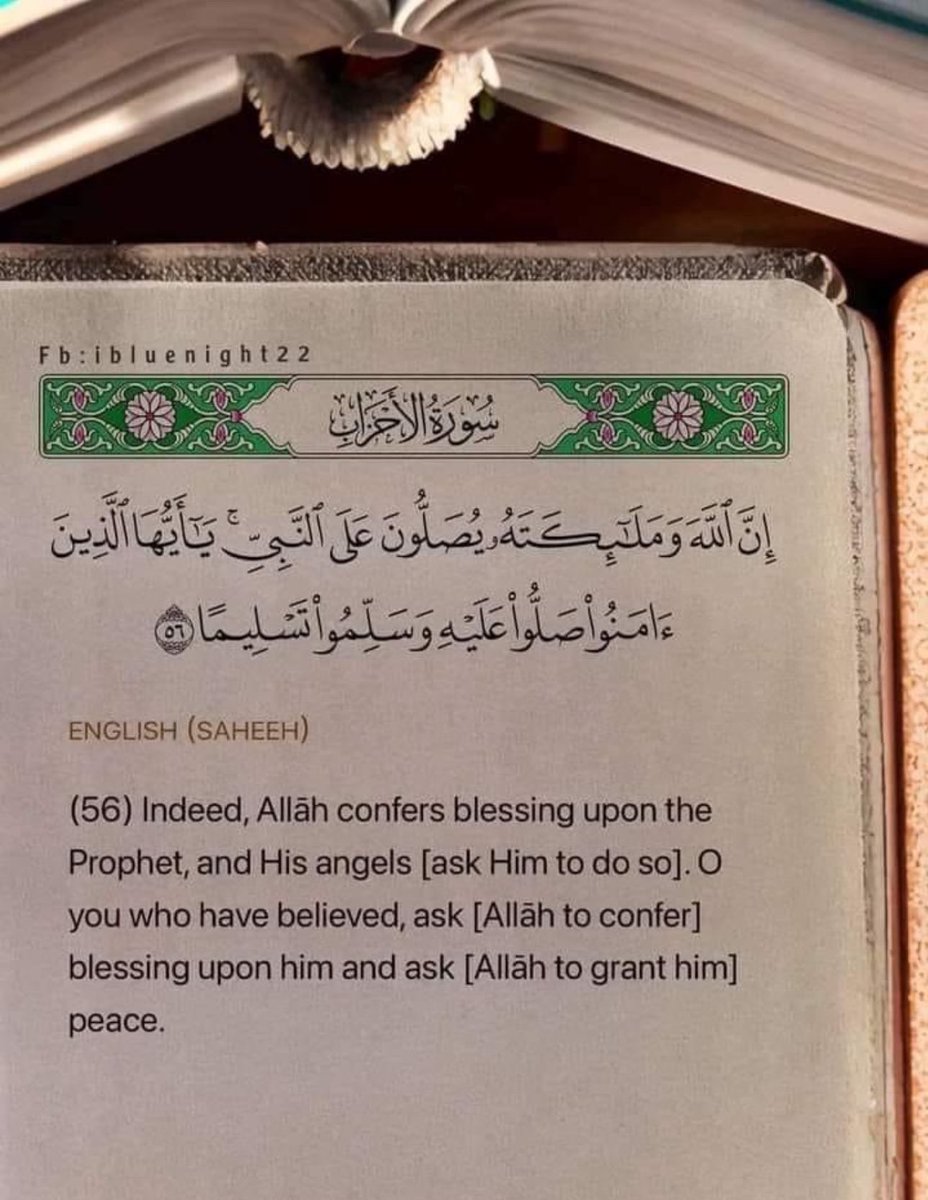 Fb:ibluenight22
سُورَةُ الأَحْزَابِ
إِنَّ ٱللَّهَ وَمَلَـٰٓئِكَتَهُۥ يُصَلُّونَ عَلَى ٱلنَّبِىِّ ۚ يَـٰٓأَيُّهَا ٱلَّذِينَ
ءَامَنُوا۟ صَلُّوا۟ عَلَيْهِ وَسَلِّمُوا۟ تَسْلِيمًا ٥٦
ENGLISH (SAHEEH)
(56) Indeed, Allāh confers blessing upon the
Prophet, and His angels [ask Him to do so]. O
you who have believed, ask [Allāh to confer]
blessing upon him and ask [Allāh to grant him]
peace.